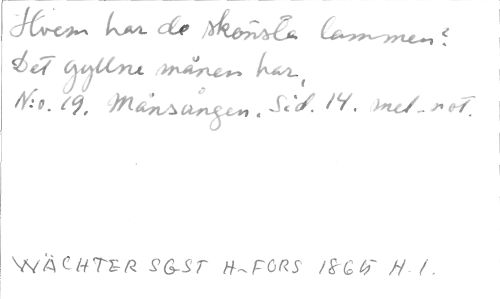 Hvem har de skönsta lammen?
Det gyllne månen har,
N:o. 19. Månsången. Sid. 14. mel-not.
WÄCHTER SGST H-FORS 1865 H. 1.